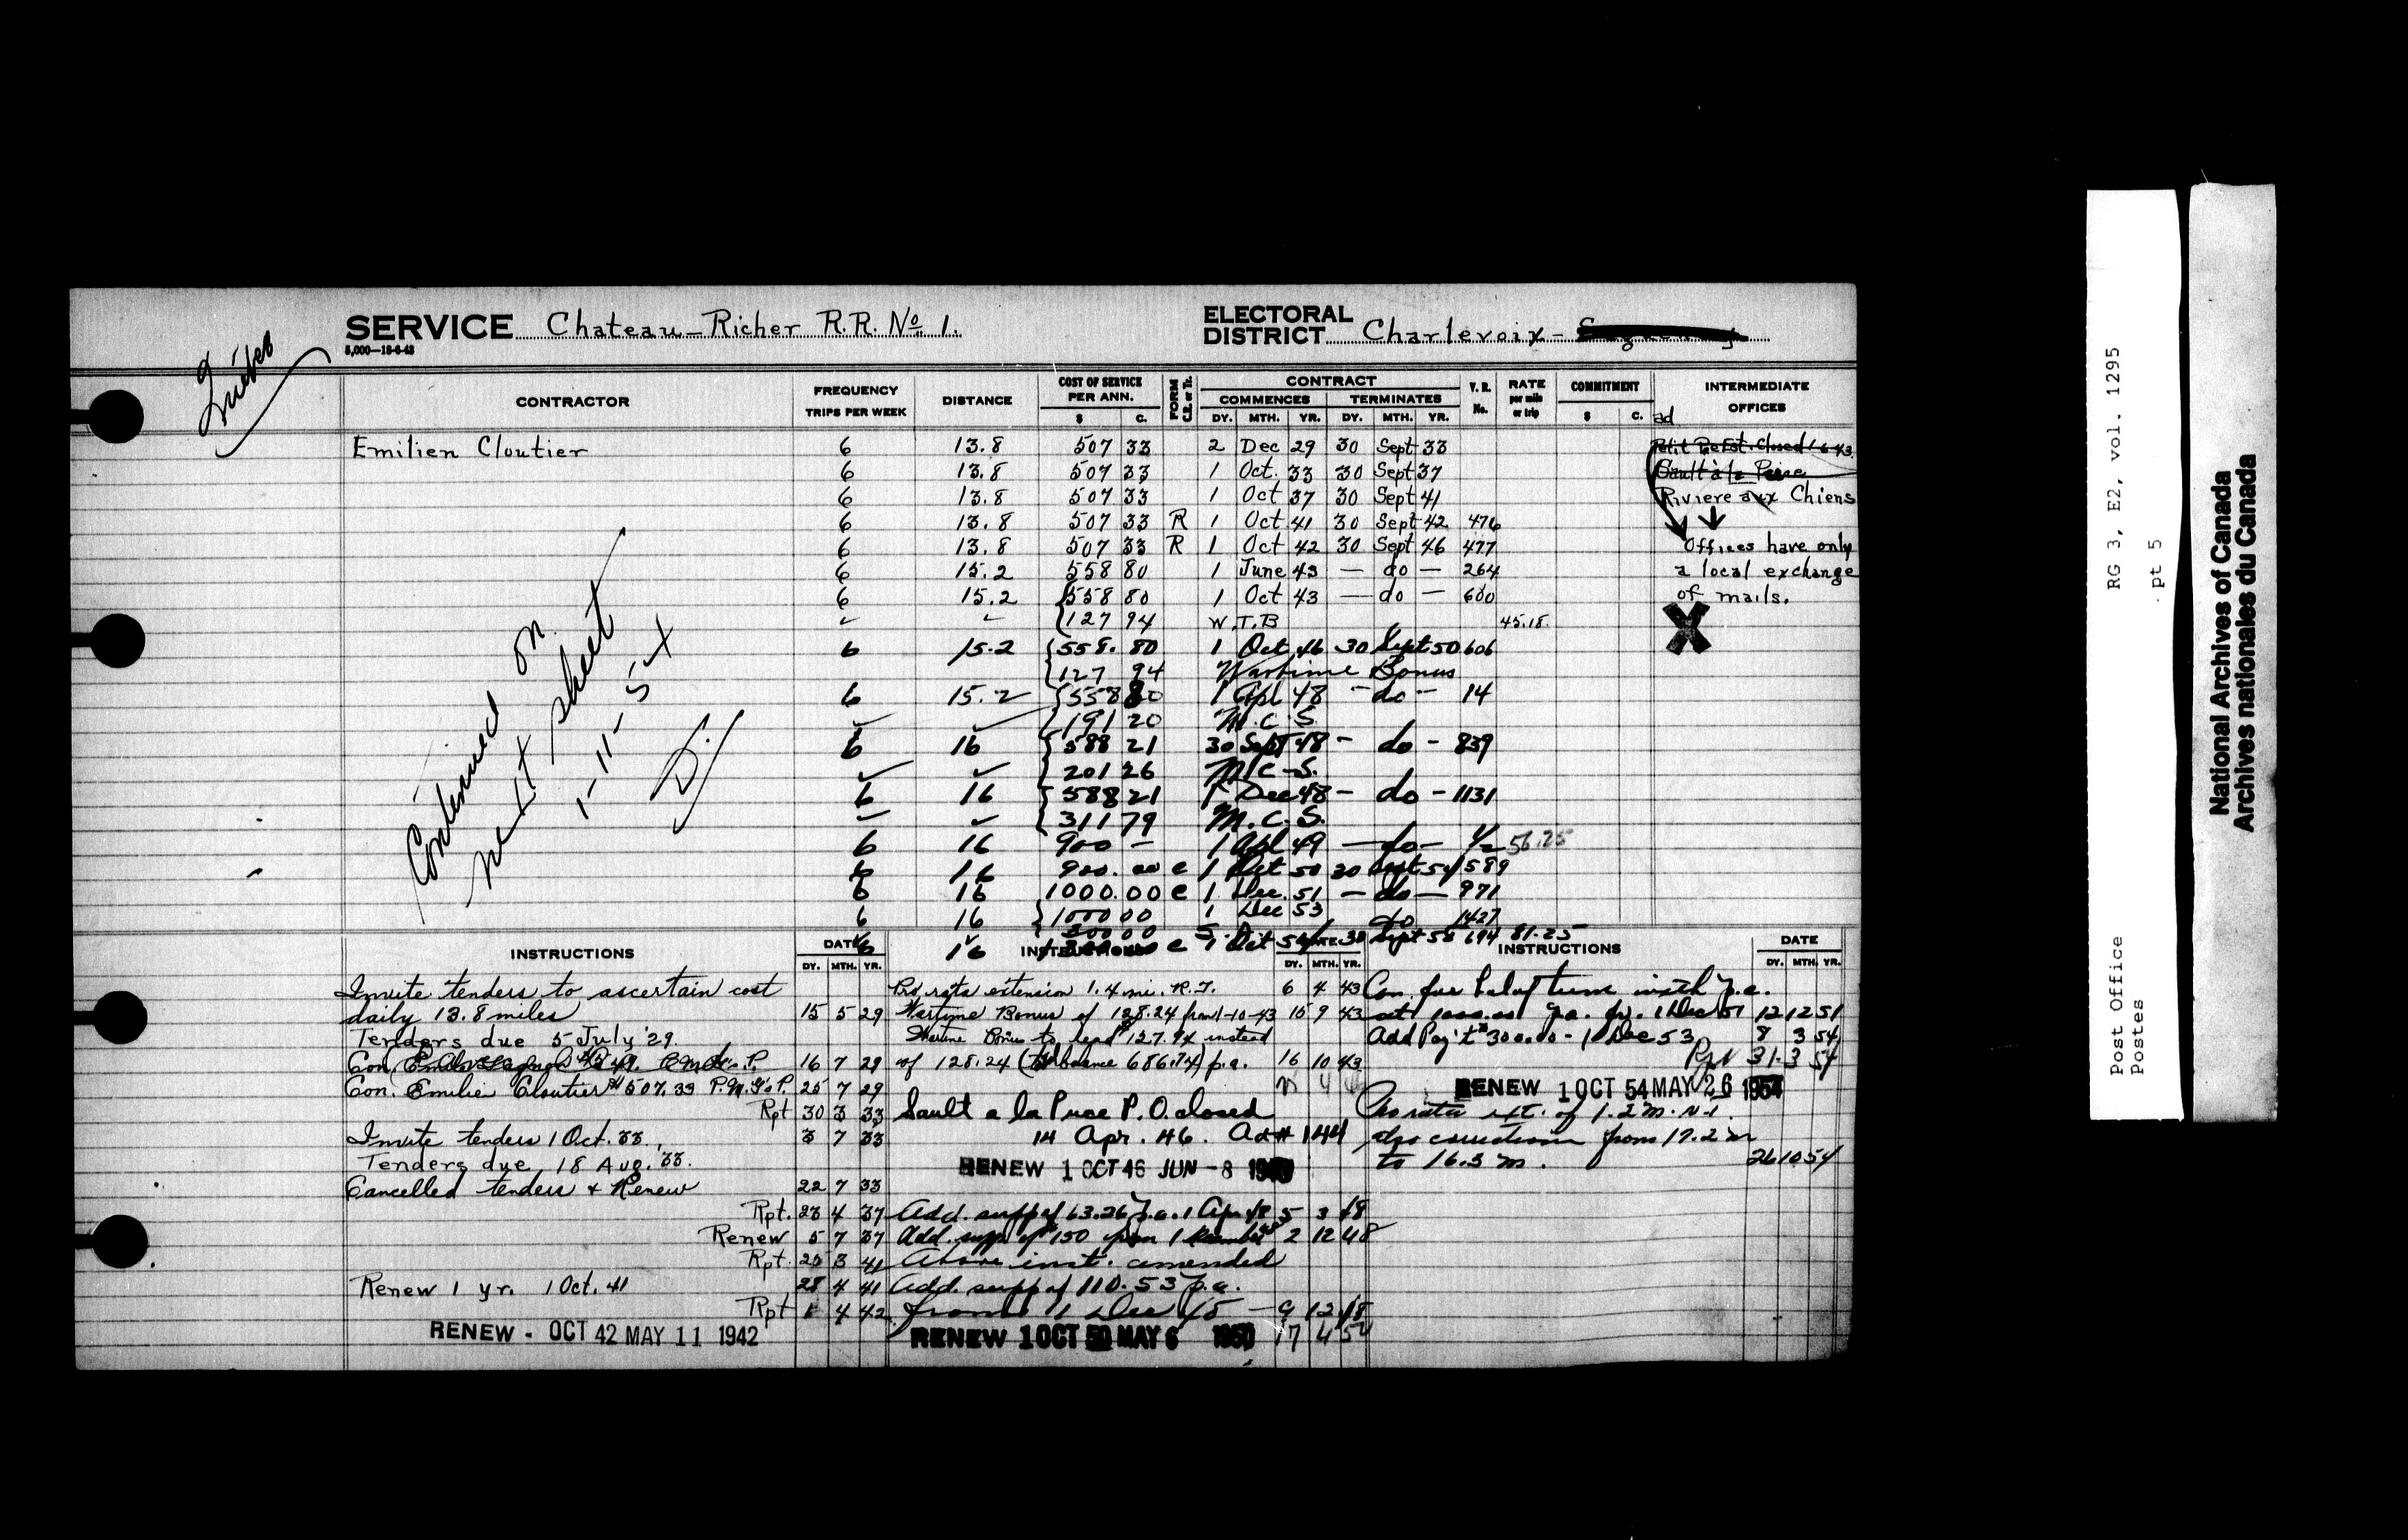 SERVICE Chateau-Richer R.R. No 1.
5,000—18-6-43
ELECTORAL DISTRICT Charlevoix-
CONTRACTOR
FREQUENCY TRIPS PER WEEK
DISTANCE
COST OF SERVICE PER ANN. $ C.
FORM C.R. or Tr.
CONTRACT
COMMENCES DY. MTH. YR.
TERMINATES DY. MTH. YR.
V. R. No.
RATE per mile or trip
COMMITMENT $ C.
INTERMEDIATE OFFICES
ad
Emilien Cloutier 6 13.8 507 33 2 Dec 29 30 Sept 33
6 13.8 507 33 1 Oct. 33 30 Sept 37
6 13.8 507 33 1 Oct 37 30 Sept 41
6 13.8 507 33 R 1 Oct 41 30 Sept 42 476
6 13.8 507 33 R 1 Oct 42 30 Sept 46 477
6 15.2 558 80 1 June 43 — do — 264
6 15.2 558 80 1 Oct 43 — do — 600
127 94 W.T.B 45.18
6 15.2 558.80 1 Oct 46 30 Sept 50 606
127 94 Wartime Bonus
6 15.2 558 80 1 Apl 48 - do - 14
191 20 M.C.S.
6 16 588 21 30 Sept 48 - do - 839
201 26 M.C.S.
6 16 588 21 1 Dec 48 - do - 1131
311 79 M.C.S.
6 16 900 - 1 Apl 49 — do — 1/2 56.25
6 16 900.00 c 1 Oct 50 30 Sept 54 1589
6 16 1000.00 c 1 Dec. 51 — do — 971
6 16 1000 00 1 Dec 53 do 1427
300 00
6 16 c 1 Oct 54 30 Sept 58 694 81.25
Petit Pre Est. Closed 1-6-43.
Sault à la Puce
Riviere aux Chiens
Offices have only
a local exchange
of mails.
X
Continued on
next sheet
1-11-54
INSTRUCTIONS
DATE DY. MTH. YR.
Invite tenders to ascertain cost
daily 13.8 miles 15 5 29
Tenders due 5 July '29.
Con. 16 7 29
Con. Emilie Cloutier $507.33 P.M.G's P. 25 7 29
Rpt 30 3 33
Invite tenders 1 Oct. 33. 3 7 33
Tenders due 18 Aug. '33.
Cancelled tenders & Renew 22 7 33
Rpt. 23 4 37
Renew 5 7 37
Rpt. 25 3 41
Renew 1 yr. 1 Oct. 41 28 4 41
Rpt 1 4 42
RENEW - OCT 42 MAY 11 1942
INSTRUCTIONS
DATE DY. MTH. YR.
Pro rata extension 1.4 mi. R.T. 6 4 43
Wartime Bonus of 128.24 from 1-10-43 15 9 43
Wartime Bonus to read $127.94 instead
of 128.24 (686.74) p.a. 16 10 43
Sault a la Puce P.O. closed
14 Apr. 46. Ad # 144
RENEW 1 OCT 46 JUN -8
Add. supp of 63.26 p.a. 1 Apr 48 5 3 48
Add. supp of $150 from 1 December 48 2 12 48
Above inst. amended
Add. supp of 110.53 p.a.
from 1 Dec 48 - 9 12 48
RENEW 1 OCT 50 MAY 6 1950 17 4 50
INSTRUCTIONS
DATE DY. MTH. YR.
Con. for bal of term with p.c.
at 1000.00 p.a. fr. 1 Dec 51 12 12 51
Add Pay't $300.00 - 1 Dec 53 8 3 54
Rpt 31.3 54
RENEW 1 OCT 54 MAY 26 1954
Pro rata ext. of 1.2 m. N.T.
also correction from 17.2 m
to 16.3 m. 26 10 54
Post Office RG 3, E2, vol. 1295
Postes pt 5
National Archives of Canada
Archives nationales du Canada